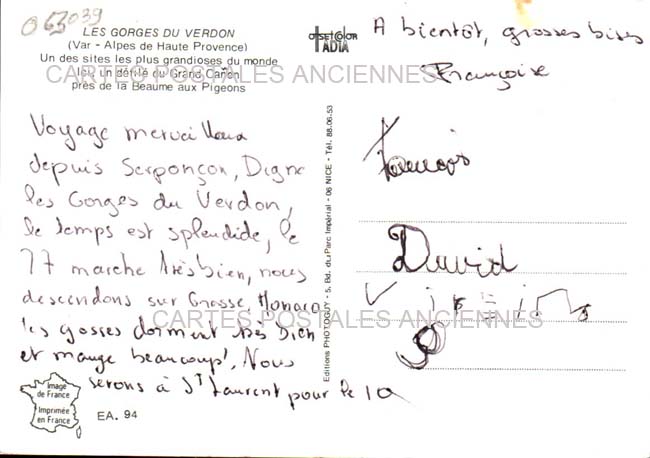 063039
LES GORGES DU VERDON
(Var - Alpes de Haute Provence)
Un des sites les plus grandioses du monde
Ici, un défilé du Grand Cañon
près de la Beaume aux Pigeons
CARTES POSTALES ANCIENNES
OFFSET COLOR
ADIA
Voyage merveilleux
depuis Serponçon, Digne
les Gorges du Verdon,
le temps est splendide, le
77 marche très bien, nous
descendons sur Grasse, Monaco
les gosses dorment très bien
et mange beaucoup! Nous
serons à St Laurent pour le 10
CARTES POSTALES ANCIENNES
Image
de France
Imprimée
en France
EA. 94
Editions PHOTOGUY - 5, Bd. du Parc Impérial - 06 NICE - Tél. 88.06.53
A bientôt, grosses bises
Françoise
François
David